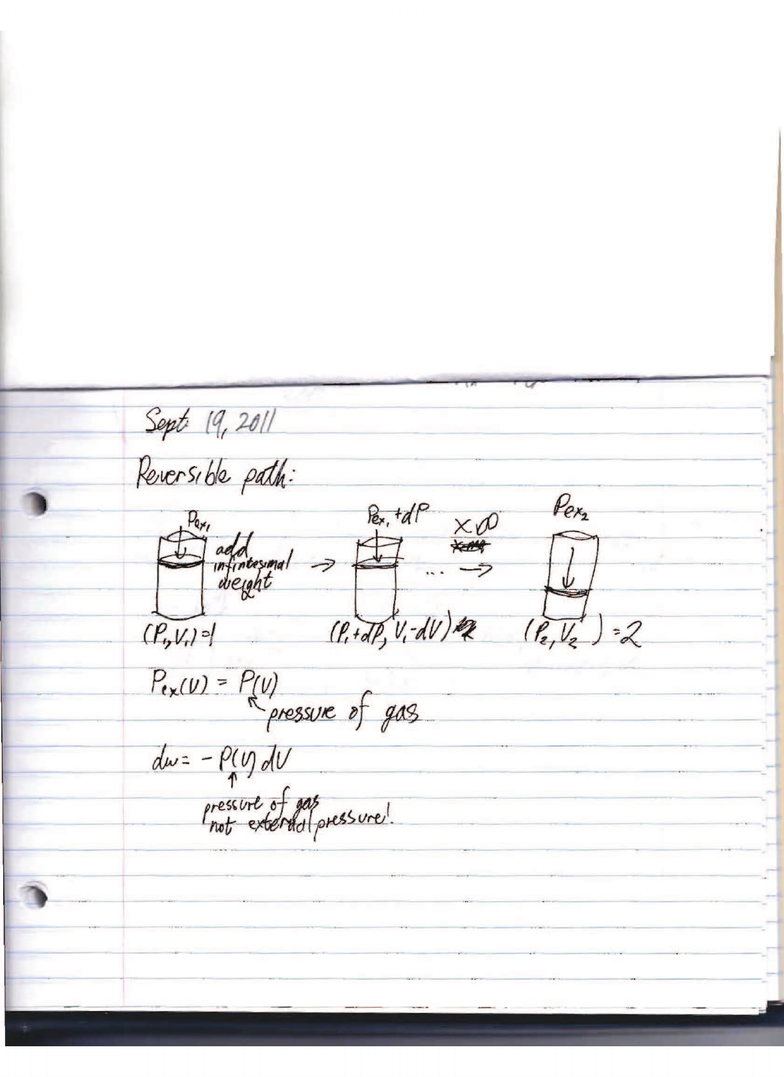 Sept. 19, 2011
Reversible path:
Pex₁
add
infintesimal
weight
→
Pex₁ + dP
x ∞
... →
Pex₂
(P₁, V₁) = 1
(P₁ + dP, V₁ - dV)
(P₂, V₂) = 2
Pex(V) = P(V)
pressure of gas
dw = - P(V) dV
pressure of gas
not external pressure!